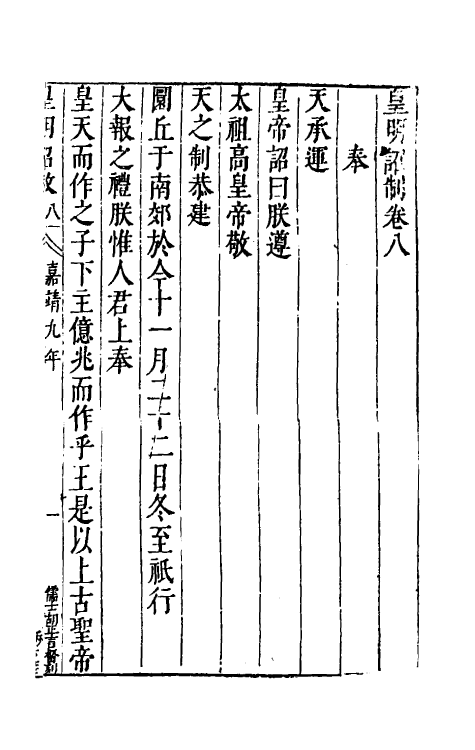 皇明詔制卷八
奉
天承運
皇帝詔曰朕遵
太祖高皇帝敬
天之制恭建
圜丘于南郊於今十一月二十二日冬至祇行
大報之禮朕惟人君上奉
皇天而作之子下主億兆而作乎王是以上古聖帝
皇明詔敕 八 嘉靖九年 一